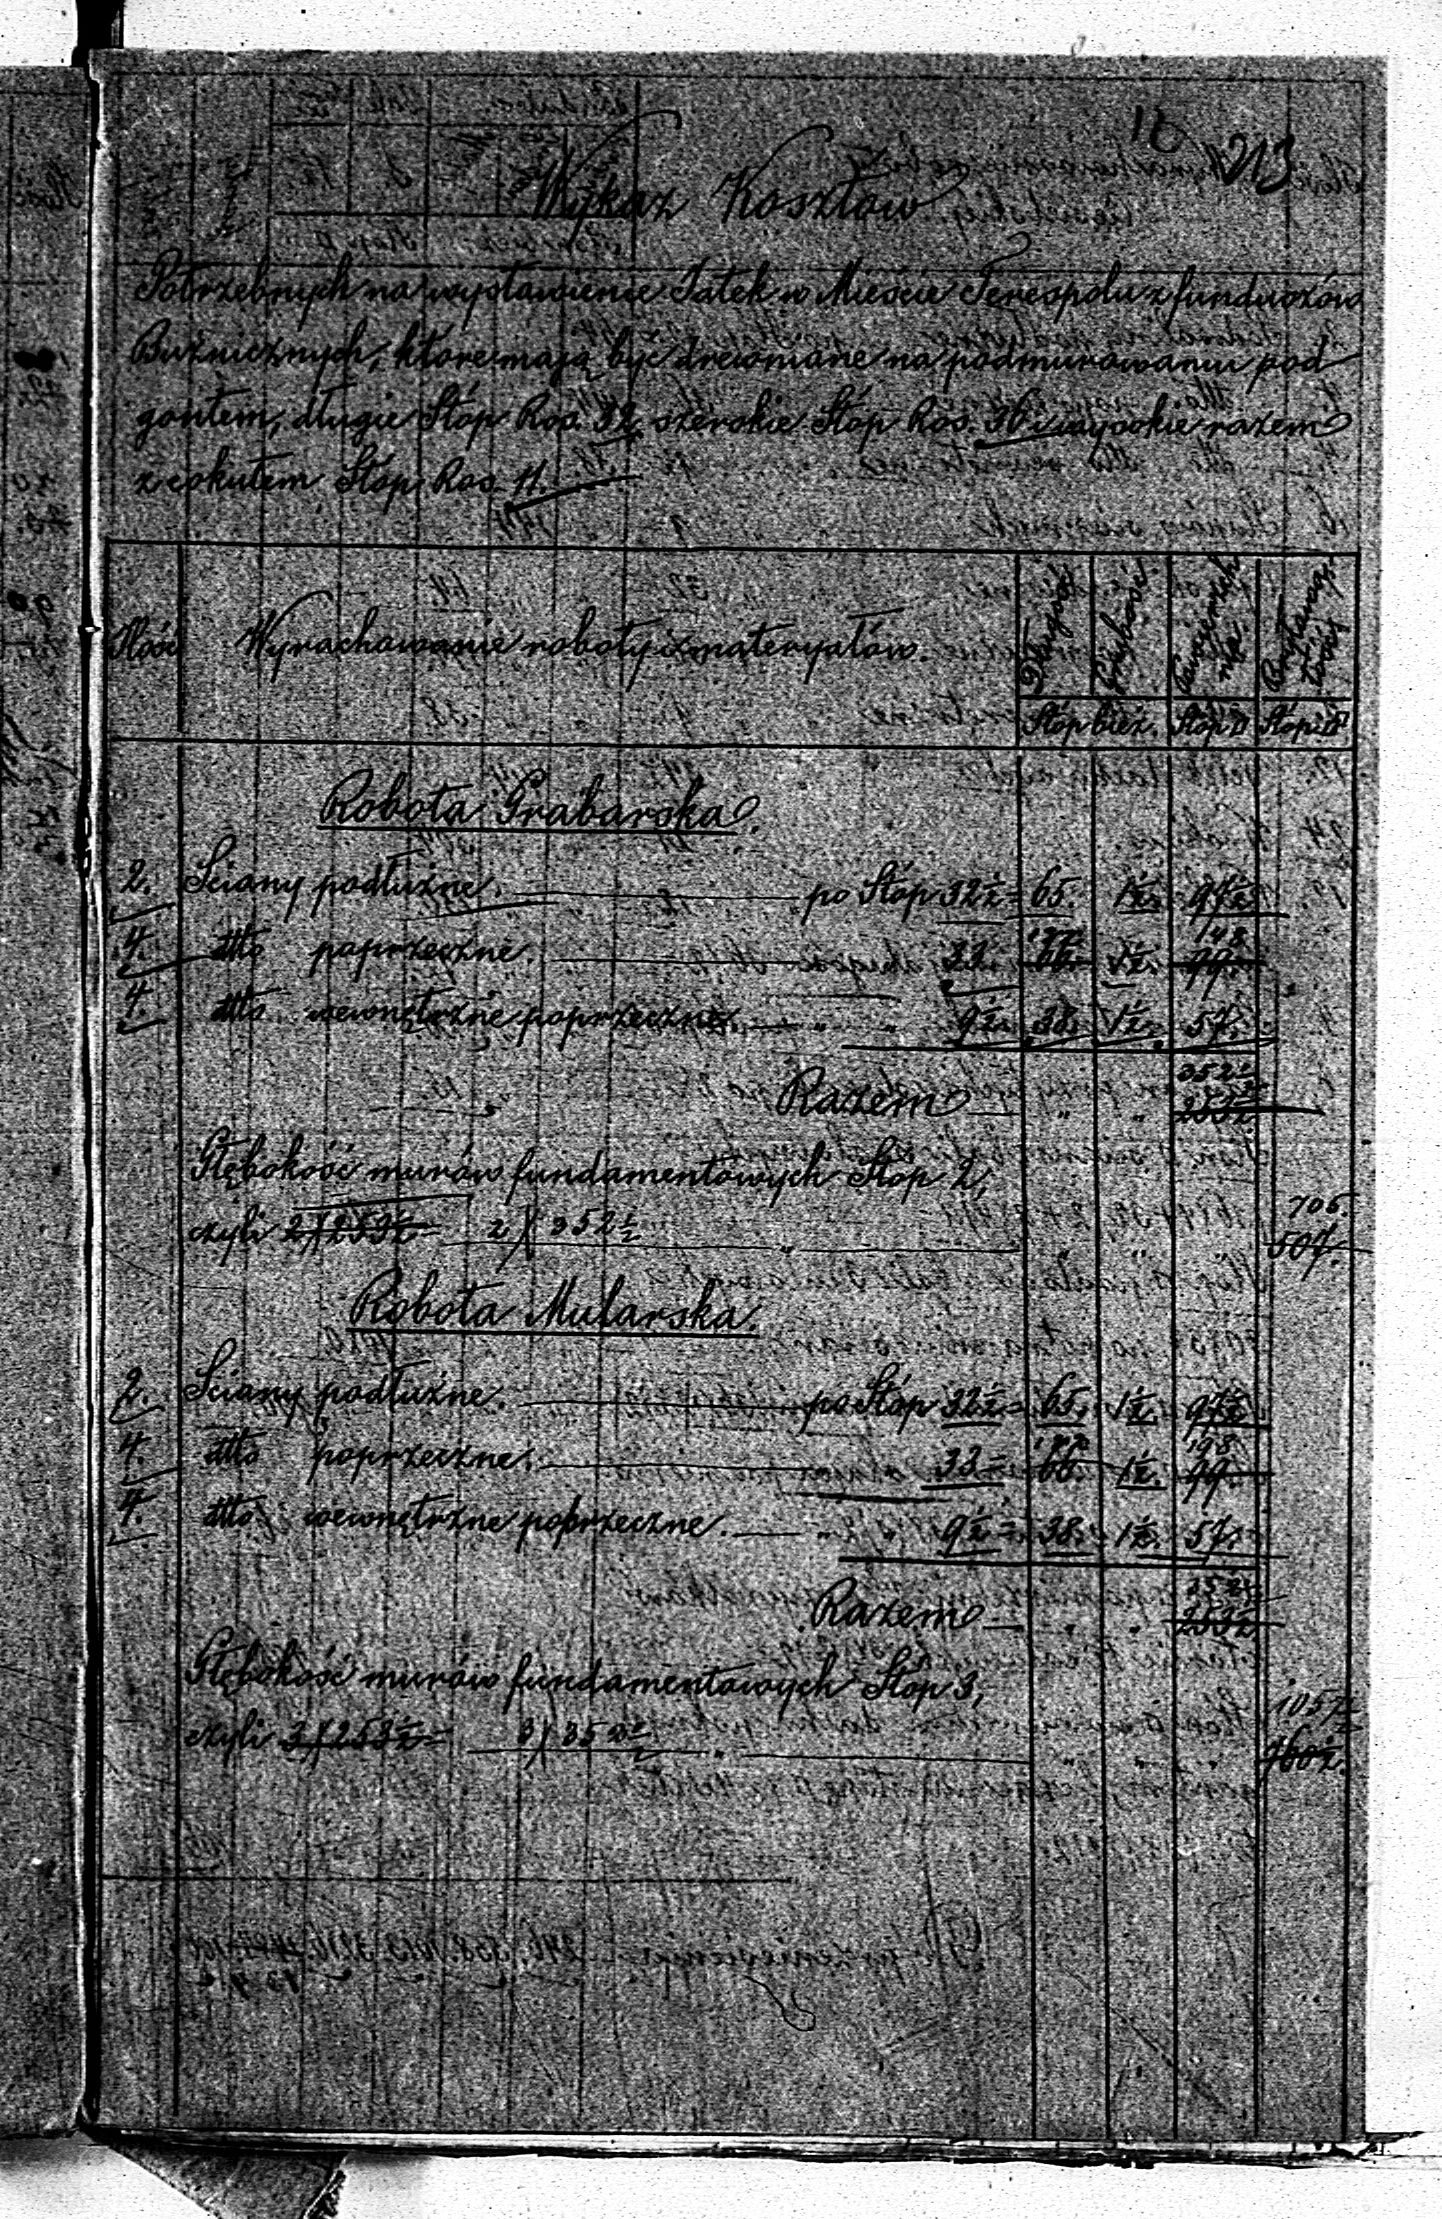 213
Wykaz Kosztów
Potrzebnych na wystawienie Jatek w Mieście Terespolu z funduszów
Bużnicznych, które mają być drewniane na podmurowaniu pod
gontem, długie Stóp Ros. 32 szerokie Stóp Ros. 36 i wysokie razem
z cokułem Stóp Ros. 11.
Ilość Wyrachowanie roboty i materyałów. Długość Grubość
Stóp bież. Stóp □ Stóp
Robota Grabarska.
2. Sciany podłużne. po Stóp 32½ = 65. 1½. 97½.
4. dtto poprzeczne. 33. 66. 1½. 99.
4. dtto wewnętrzne poprzeczne. " " 9½. 38. 1½. 57.
352½
Razem " " 253½
Głębokość murów fundamentowych Stóp 2,
705.
czyli 2)(253½ 2)(352½ " 507.
Robota Mularska.
2. Sciany podłużne. po Stóp 32½ = 65. 1½. 97½.
198
4. dtto poprzeczne. 33 = 66. 1½. 99.
4. dtto wewnętrzne poprzeczne. " " 9½ = 38. 1½. 57.
352½
Razem " " 253½
Głębokość murów fundamentowych Stóp 3,
1057½
czyli 3)(253½ = 3)(352½ " 760½.